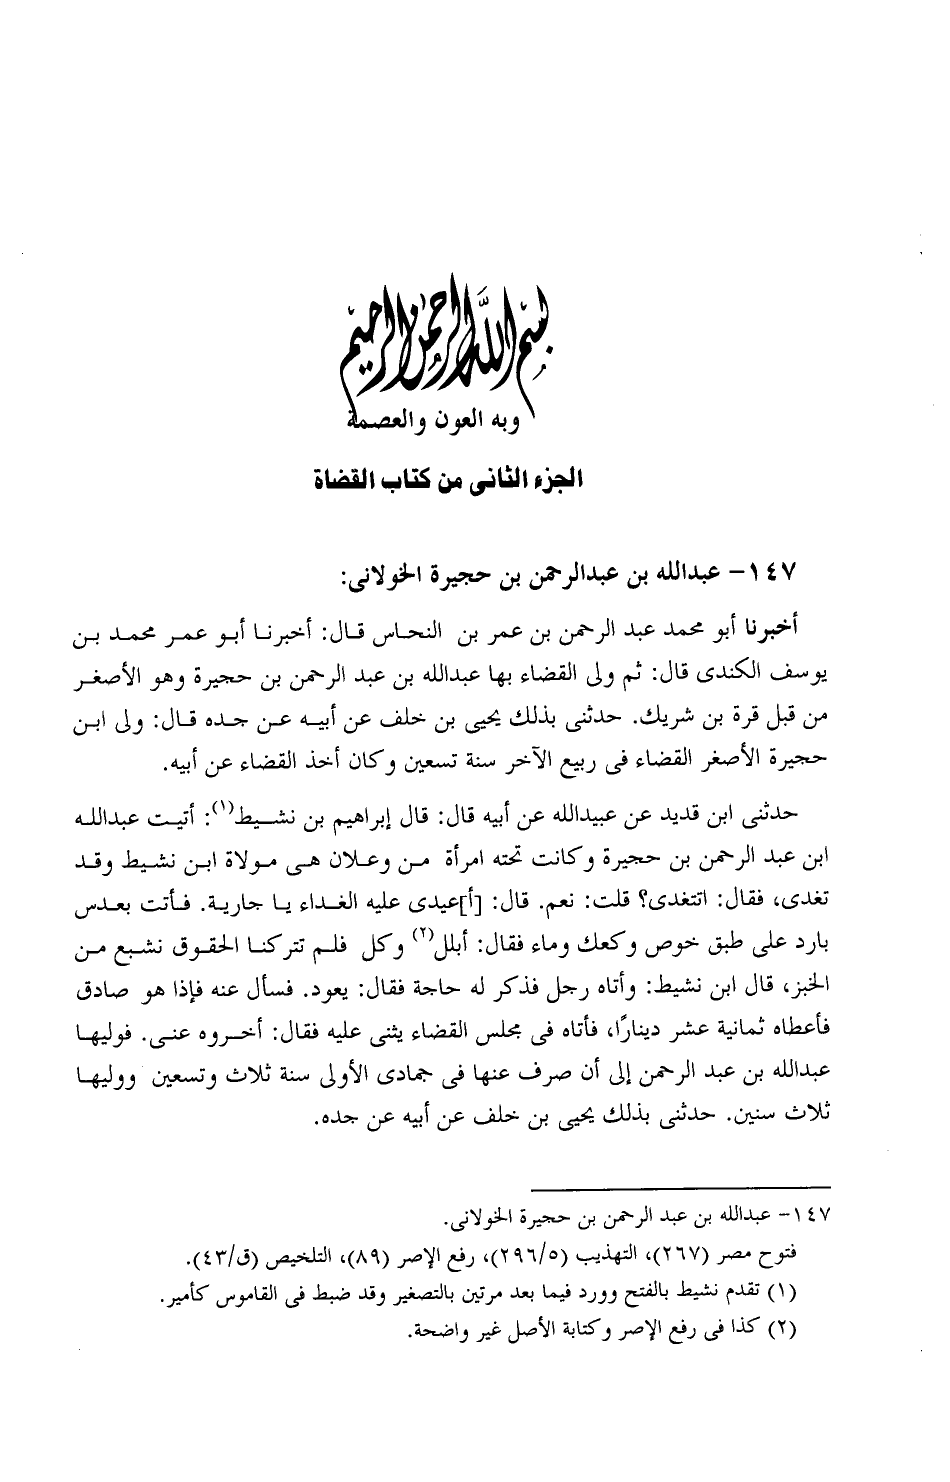 بسم الله الرحمن الرحيم
وبه العون والعصمة
الجزء الثانى من كتاب القضاة
١٤٧- عبدالله بن عبدالرحمن بن حجيرة الخولانى:
أخبرنا أبو محمد عبد الرحمن بن عمر بن النحاس قال: أخبرنا أبو عمر محمد بن
يوسف الكندى قال: ثم ولى القضاء بها عبدالله بن عبد الرحمن بن حجيرة وهو الأصغر
من قبل قرة بن شريك. حدثنى بذلك يحيى بن خلف عن أبيه عن جده قال: ولى ابن
حجيرة الأصغر القضاء فى ربيع الآخر سنة تسعين وكان أخذ القضاء عن أبيه.
حدثنى ابن قديد عن عبيدالله عن أبيه قال: قال إبراهيم بن نشيط(١): أتيت عبدالله
ابن عبد الرحمن بن حجيرة وكانت تحته امرأة من وعلان هى مولاة ابن نشيط وقد
تغدى، فقال: اتتغدى؟ قلت: نعم. قال: [أ]عيدى عليه الغداء يا جارية. فأتت بعدس
بارد على طبق خوص وكعك وماء فقال: أبلل(٢) وكل فلم تتركنا الحقوق نشبع من
الخبز، قال ابن نشيط: وأتاه رجل فذكر له حاجة فقال: يعود. فسأل عنه فإذا هو صادق
فأعطاه ثمانية عشر دينارًا، فأتاه فى مجلس القضاء يثنى عليه فقال: أخروه عنى. فوليها
عبدالله بن عبد الرحمن إلى أن صرف عنها فى جمادى الأولى سنة ثلاث وتسعين ووليها
ثلاث سنين. حدثنى بذلك يحيى بن خلف عن أبيه عن جده.
١٤٧- عبدالله بن عبد الرحمن بن حجيرة الخولانى.
فتوح مصر (٢٦٧)، التهذيب (٢٩٦/٥)، رفع الإصر (٨٩)، التلخيص (ق/٤٣).
(١) تقدم نشيط بالفتح وورد فيما بعد مرتين بالتصغير وقد ضبط فى القاموس كأمير.
(٢) كذا فى رفع الإصر وكتابة الأصل غير واضحة.